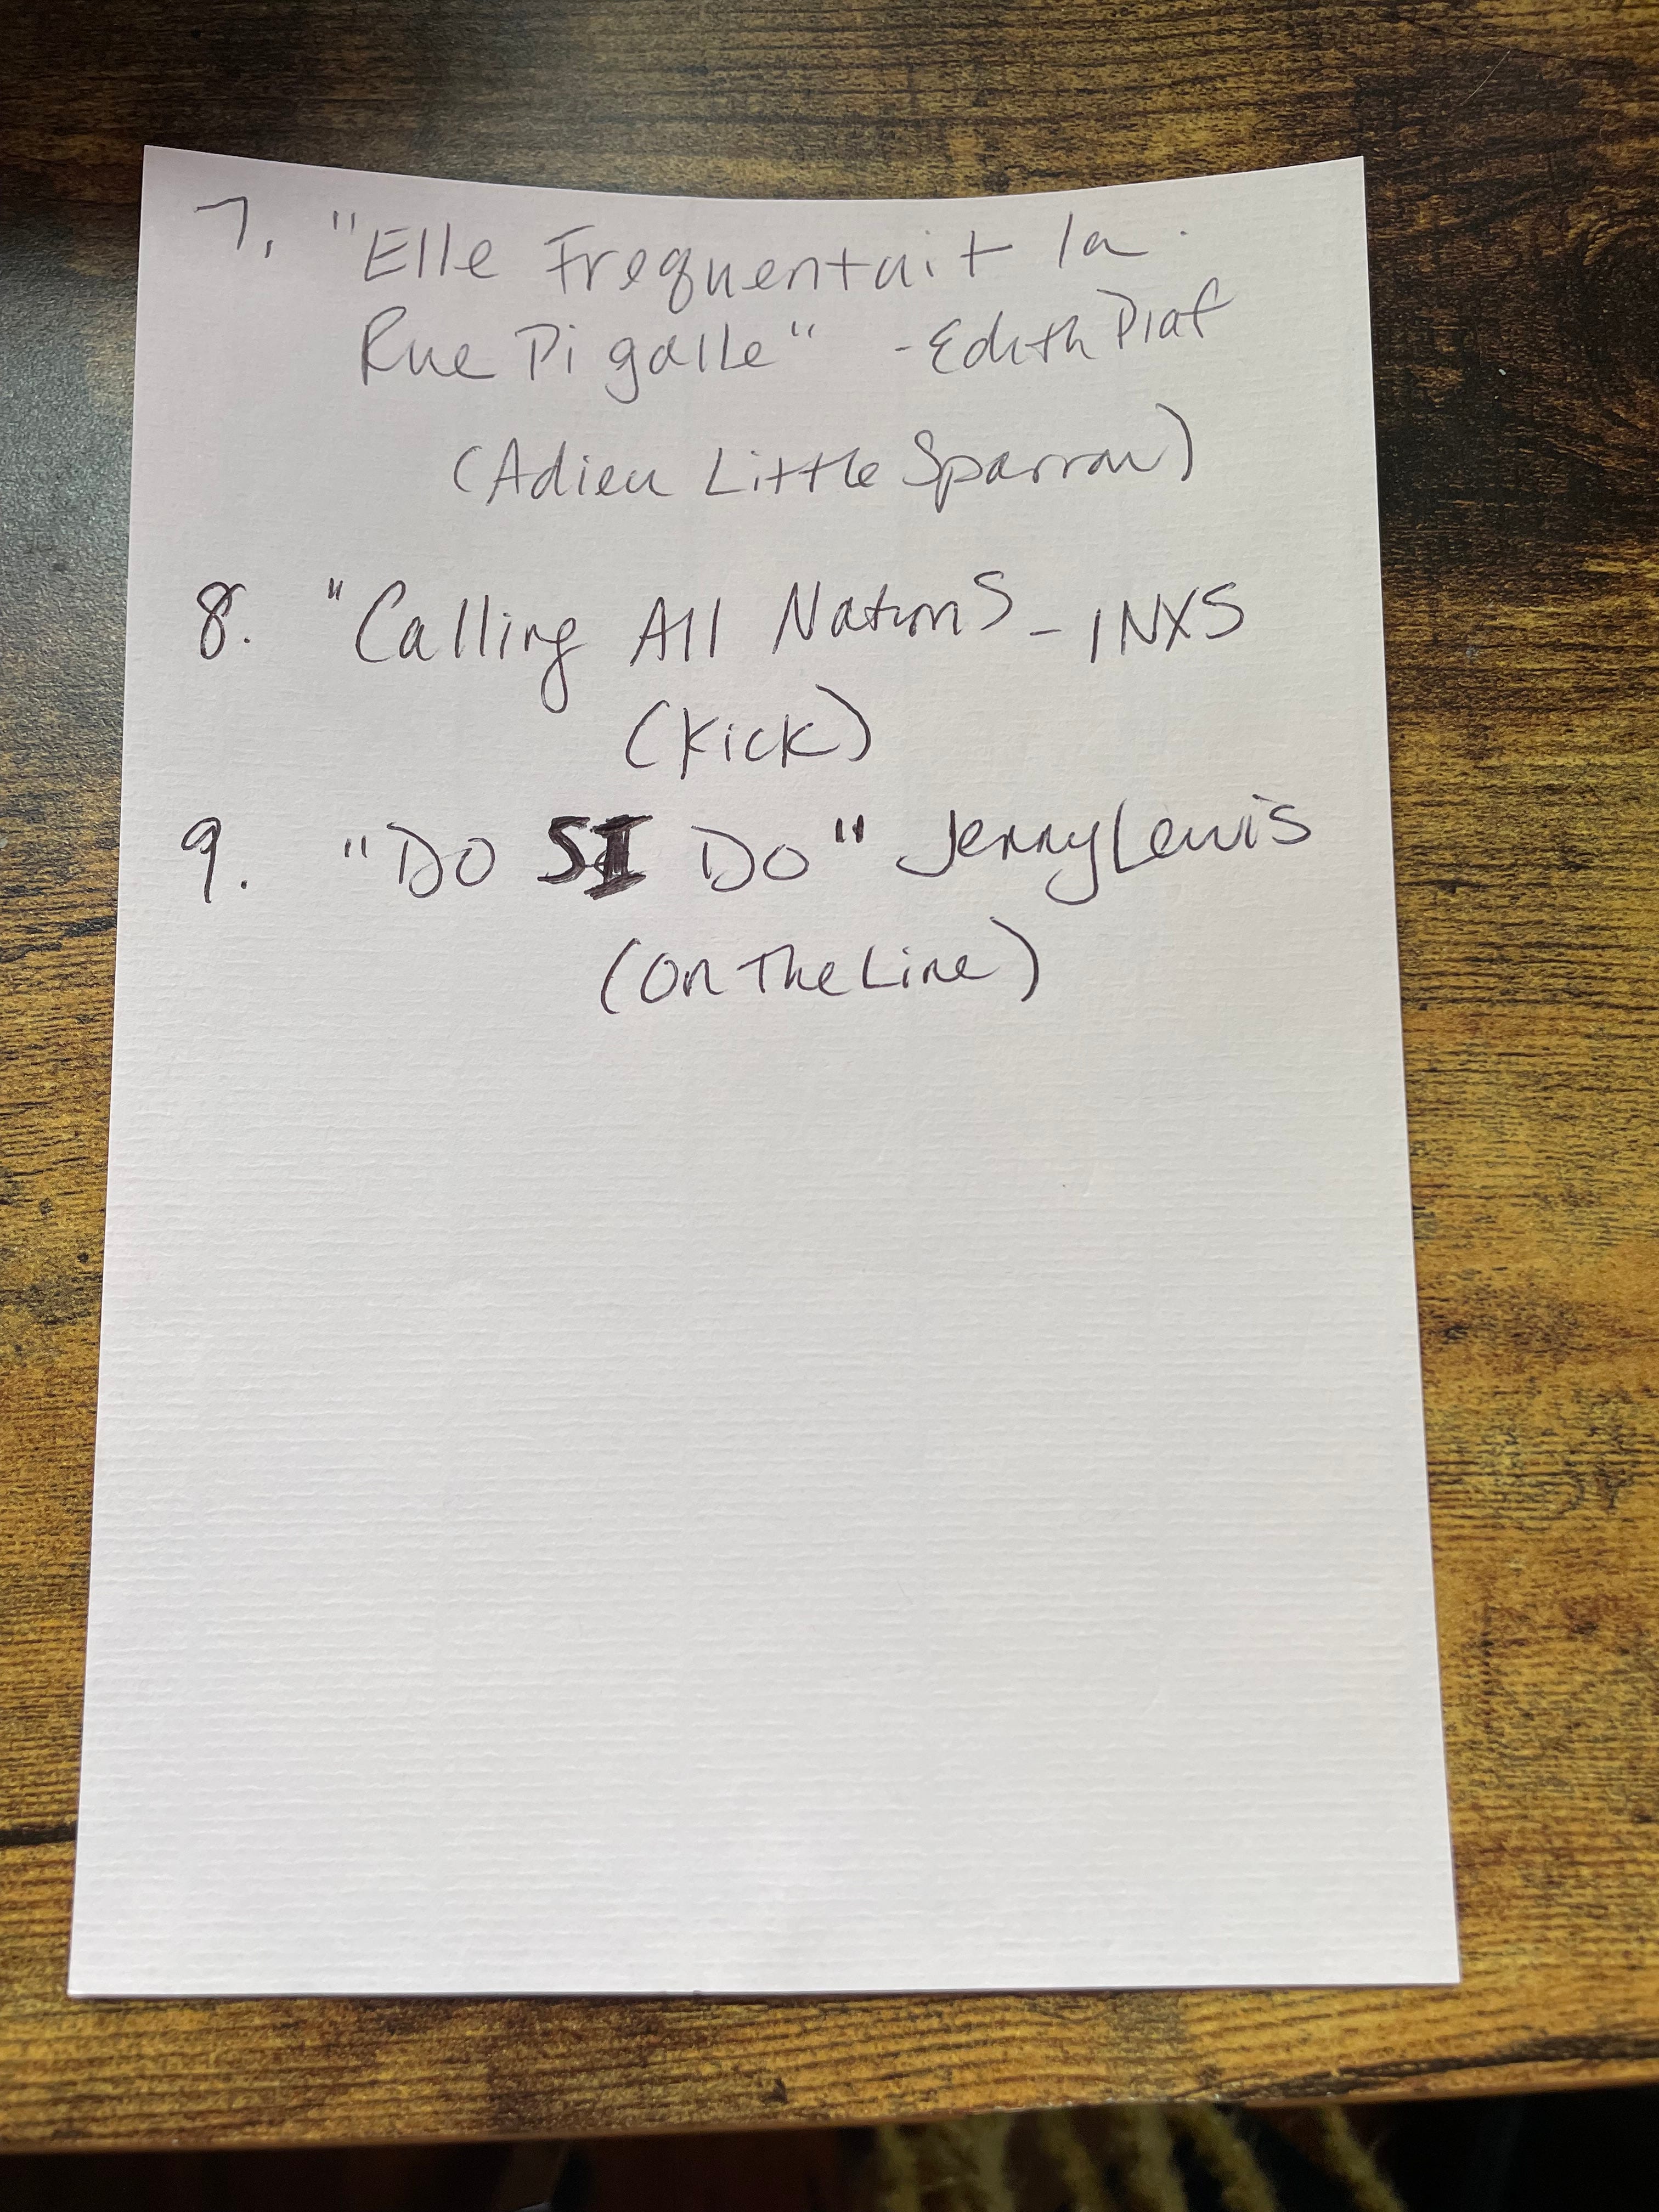 7. "Elle Frequentait la
Rue Pigalle" - Edith Piaf
(Adieu Little Sparrow)
8. "Calling All Nations - INXS
(Kick)
9. "Do SI Do" Jenny Lewis
(On The Line)